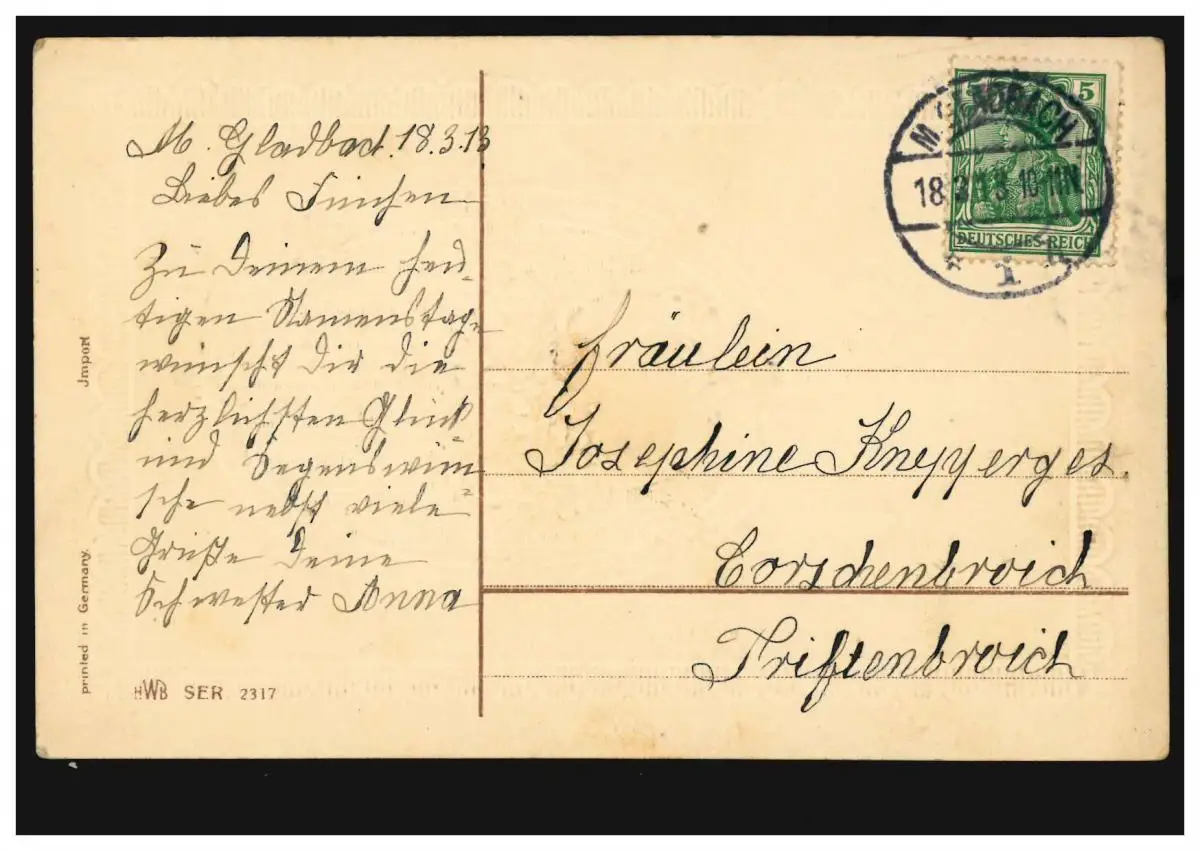 M. Gladbach. 18.3.13
Liebes Finchen
Zu Deinem heu-
tigen Namenstage
wünscht Dir die
herzlichsten Glück
und Segenswün
sche nebst viele
Grüße Deine
Schwester Anna
M. GLADBACH
18.3.13 10-11N
* 1
5
DEUTSCHES REICH
Fräulein
Josephine Knepperges.
Corschenbroich
Triftenbroich
Jmport
printed in Germany.
HWB SER 2317